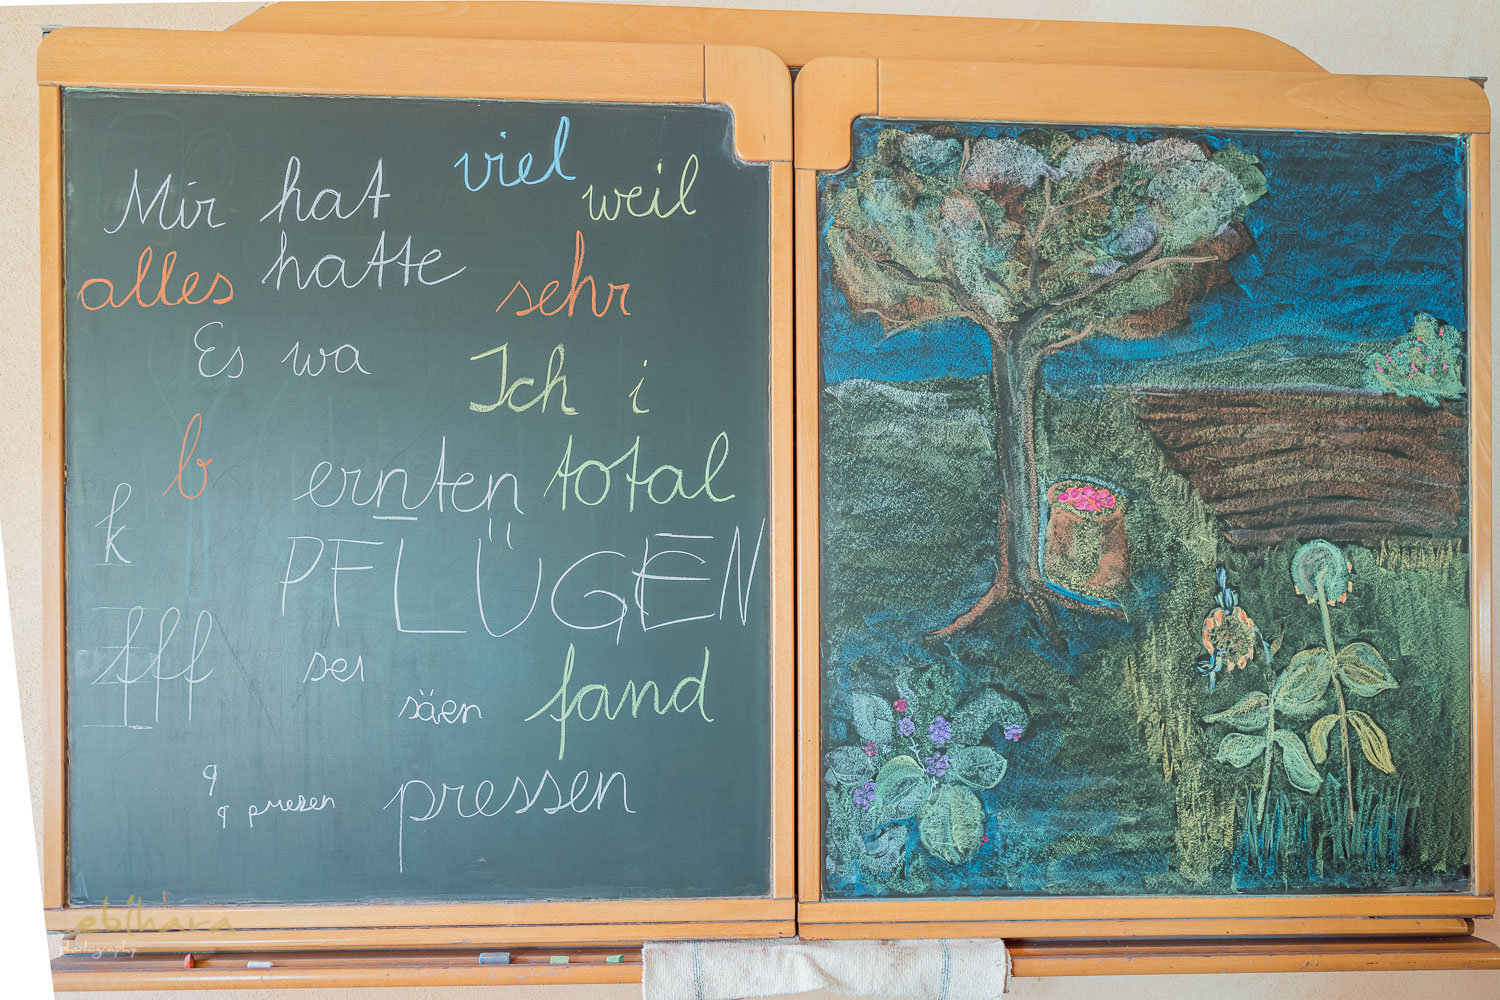 viel
Mir hat weil
alles hatte sehr
Es wa Ich i
b ernten total
k PFLÜGEN
fff ser fand
säen
q
q pressen
ebihara
photography